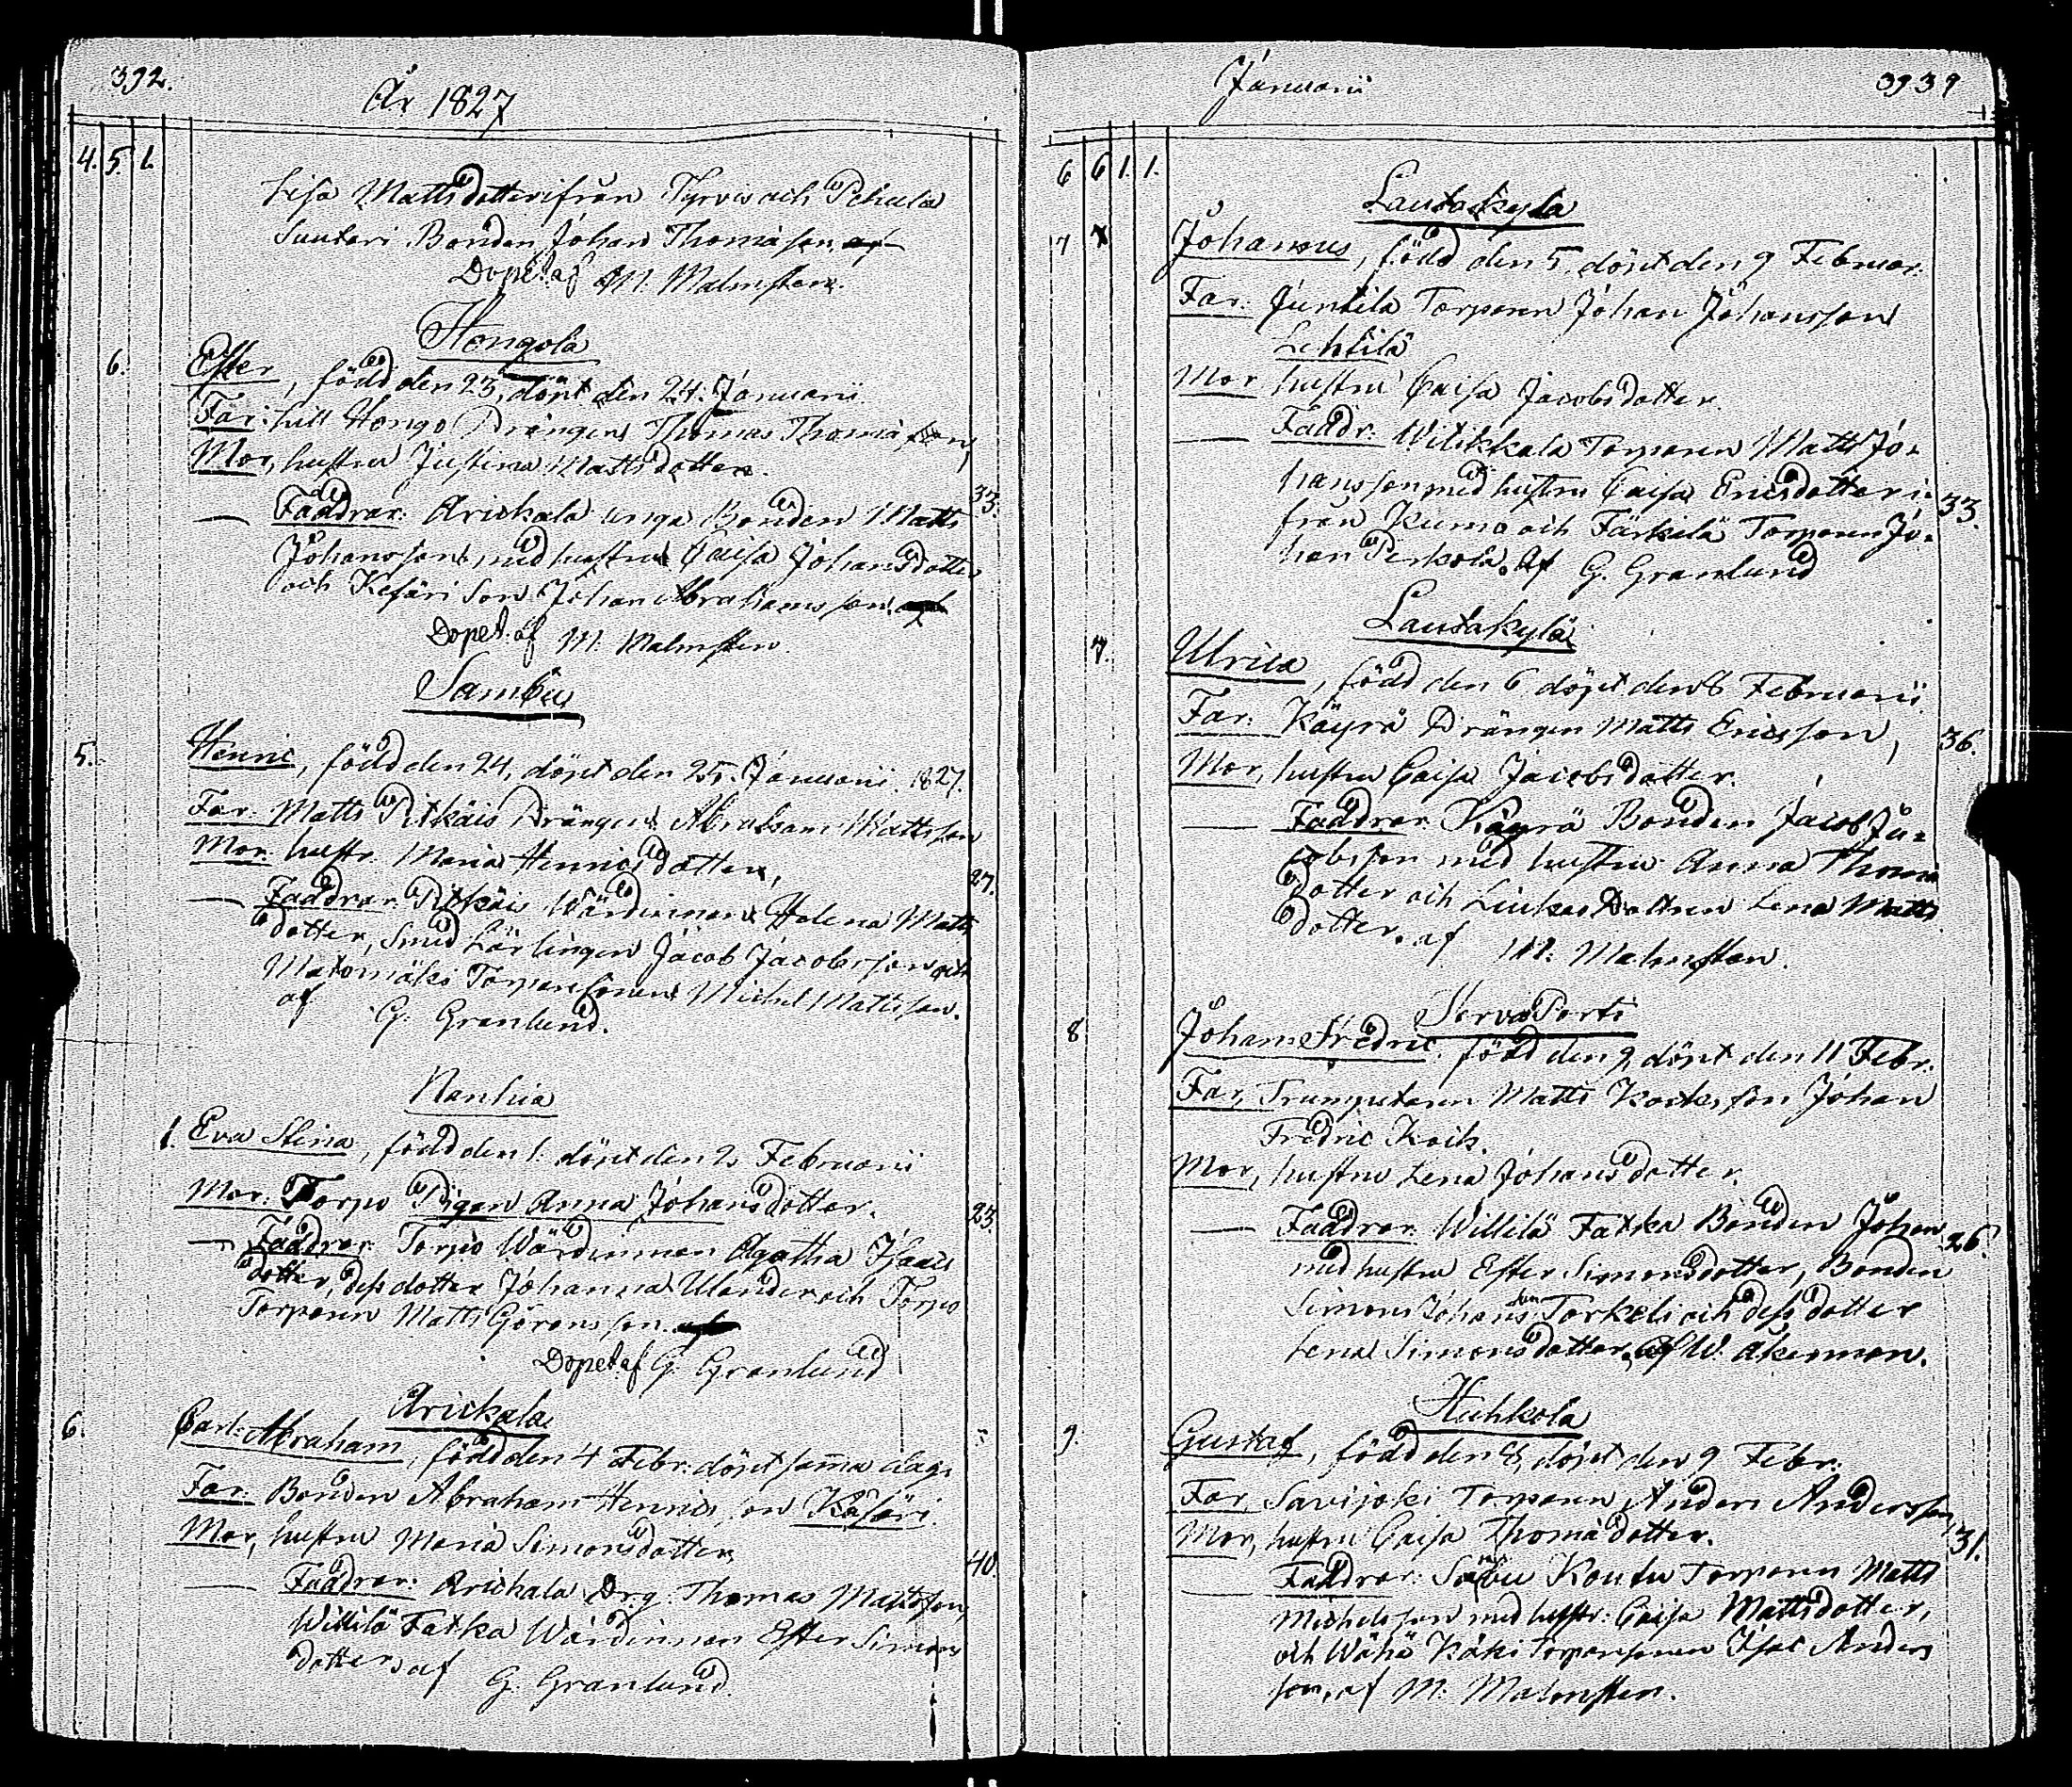 392.
År 1827
4. 5. 1.
Lisa Matts dotter ifrån Tyrvis och Pehula
Suutari Bonden Johan Thomasson
Dopet af M. Malmsten.
Hongola
6. Ester, född den 23, döpt den 24. Januarii.
Far: Hongo Drängen Thomas Thomasson,
Mor, hustru Justina Mattsdotter.
33.
Faddrar: Arickala unga Bonden Matts
Johansson, med hustru Caisa Johansdotter
och Kesäri Son Johan Abrahamsson.
Dopet af M. Malmsten.
Sambu
5. Henric, född den 24, döpt den 25. Januarii. 1827.
Far: Matts Pitkäis Drängen Abraham Mattsson
Mor. hustr. Maria Henricsdotter,
27.
Faddrar. Pitkäis Värdinnan Helena Matts
dotter, Smed Lärlingen Jacob Jacobsson och
Matomäki Torparesonen Michel Mattsson.
af G. Granlund.
Nanhia
1. Eva Stina, född den 1. döpt den 2. Februarii
Mor: Torpo Pigan Anna Johansdotter.
23.
Faddrar: Torpo Wärdinnan Agatha Isaacs
dotter, dess dotter Johanna Ulander och Torpo
Torparen Matts Göransson.
Dopet af G. Granlund
Arickala
6. Carl Abraham, född den 4 Febr: döpt samma dag.
Far: Bonden Abraham Henricsson Käsäri.
Mor, hustru Maria Simonsdotter,
40.
Faddrar: Arickala Drg. Thomas Mattsson,
Willilä Fatka Wärdinnan Ester Simons
dotter, af G. Granlund
Januarii
3939
6 6 1. 1.
Lautakylä
7 Johannes, född den 5, döpt den 9 Februar:
Far: Juntila Torparen Johan Johansson
Lehtilä
Mor hustru Caisa Jacobsdotter.
Faddr: Wilikkala Torparen Matts Jo-
hansson med hustru Caisa Ericsdotter i-
33.
från Kumo och Färkilä Torparen Jo-
han Perkola. af G. Granlund
Lautakylä
7. Ulrica, född den 6 döpt den 8 Februarii.
Far: Käyrä Drängen Matts Ericsson,
36.
Mor, hustru Caisa Jacobsdotter.
Faddrar: Käyrä Bonden Jacob Ja-
cobsson med hustru Anna Thoma
dotter och Liukas Dottren Lena Matts
dotter. af M. Malmsten.
8 Johan Fredric. född den 9, döpt den 11 Febr.
Far, Trumpetaren Matts Kocks son Johan
Fredric Kock.
Mor, hustru Lena Johansdotter.
Faddrar. Willilä Fatka Bonden Johan
26.
med hustru Ester Simonsdotter, Bonden
Simon Johansson Torkels och dess dotter
Lena Simonsdotter. af W. Åkerman.
Huhkola
9. Gustaf, född den 8, döpt den 9 Febr.
Far, Savijoki Torparen Anders Andersson,
Mor, hustru Caisa Thomadotter.
31.
Faddrar: Sambu Koutu Torparen Matts
Michelsson med hustr: Caisa Mattsdotter,
och Wähä Käki Torparesonen Isac Anders
son, af M. Malmsten.